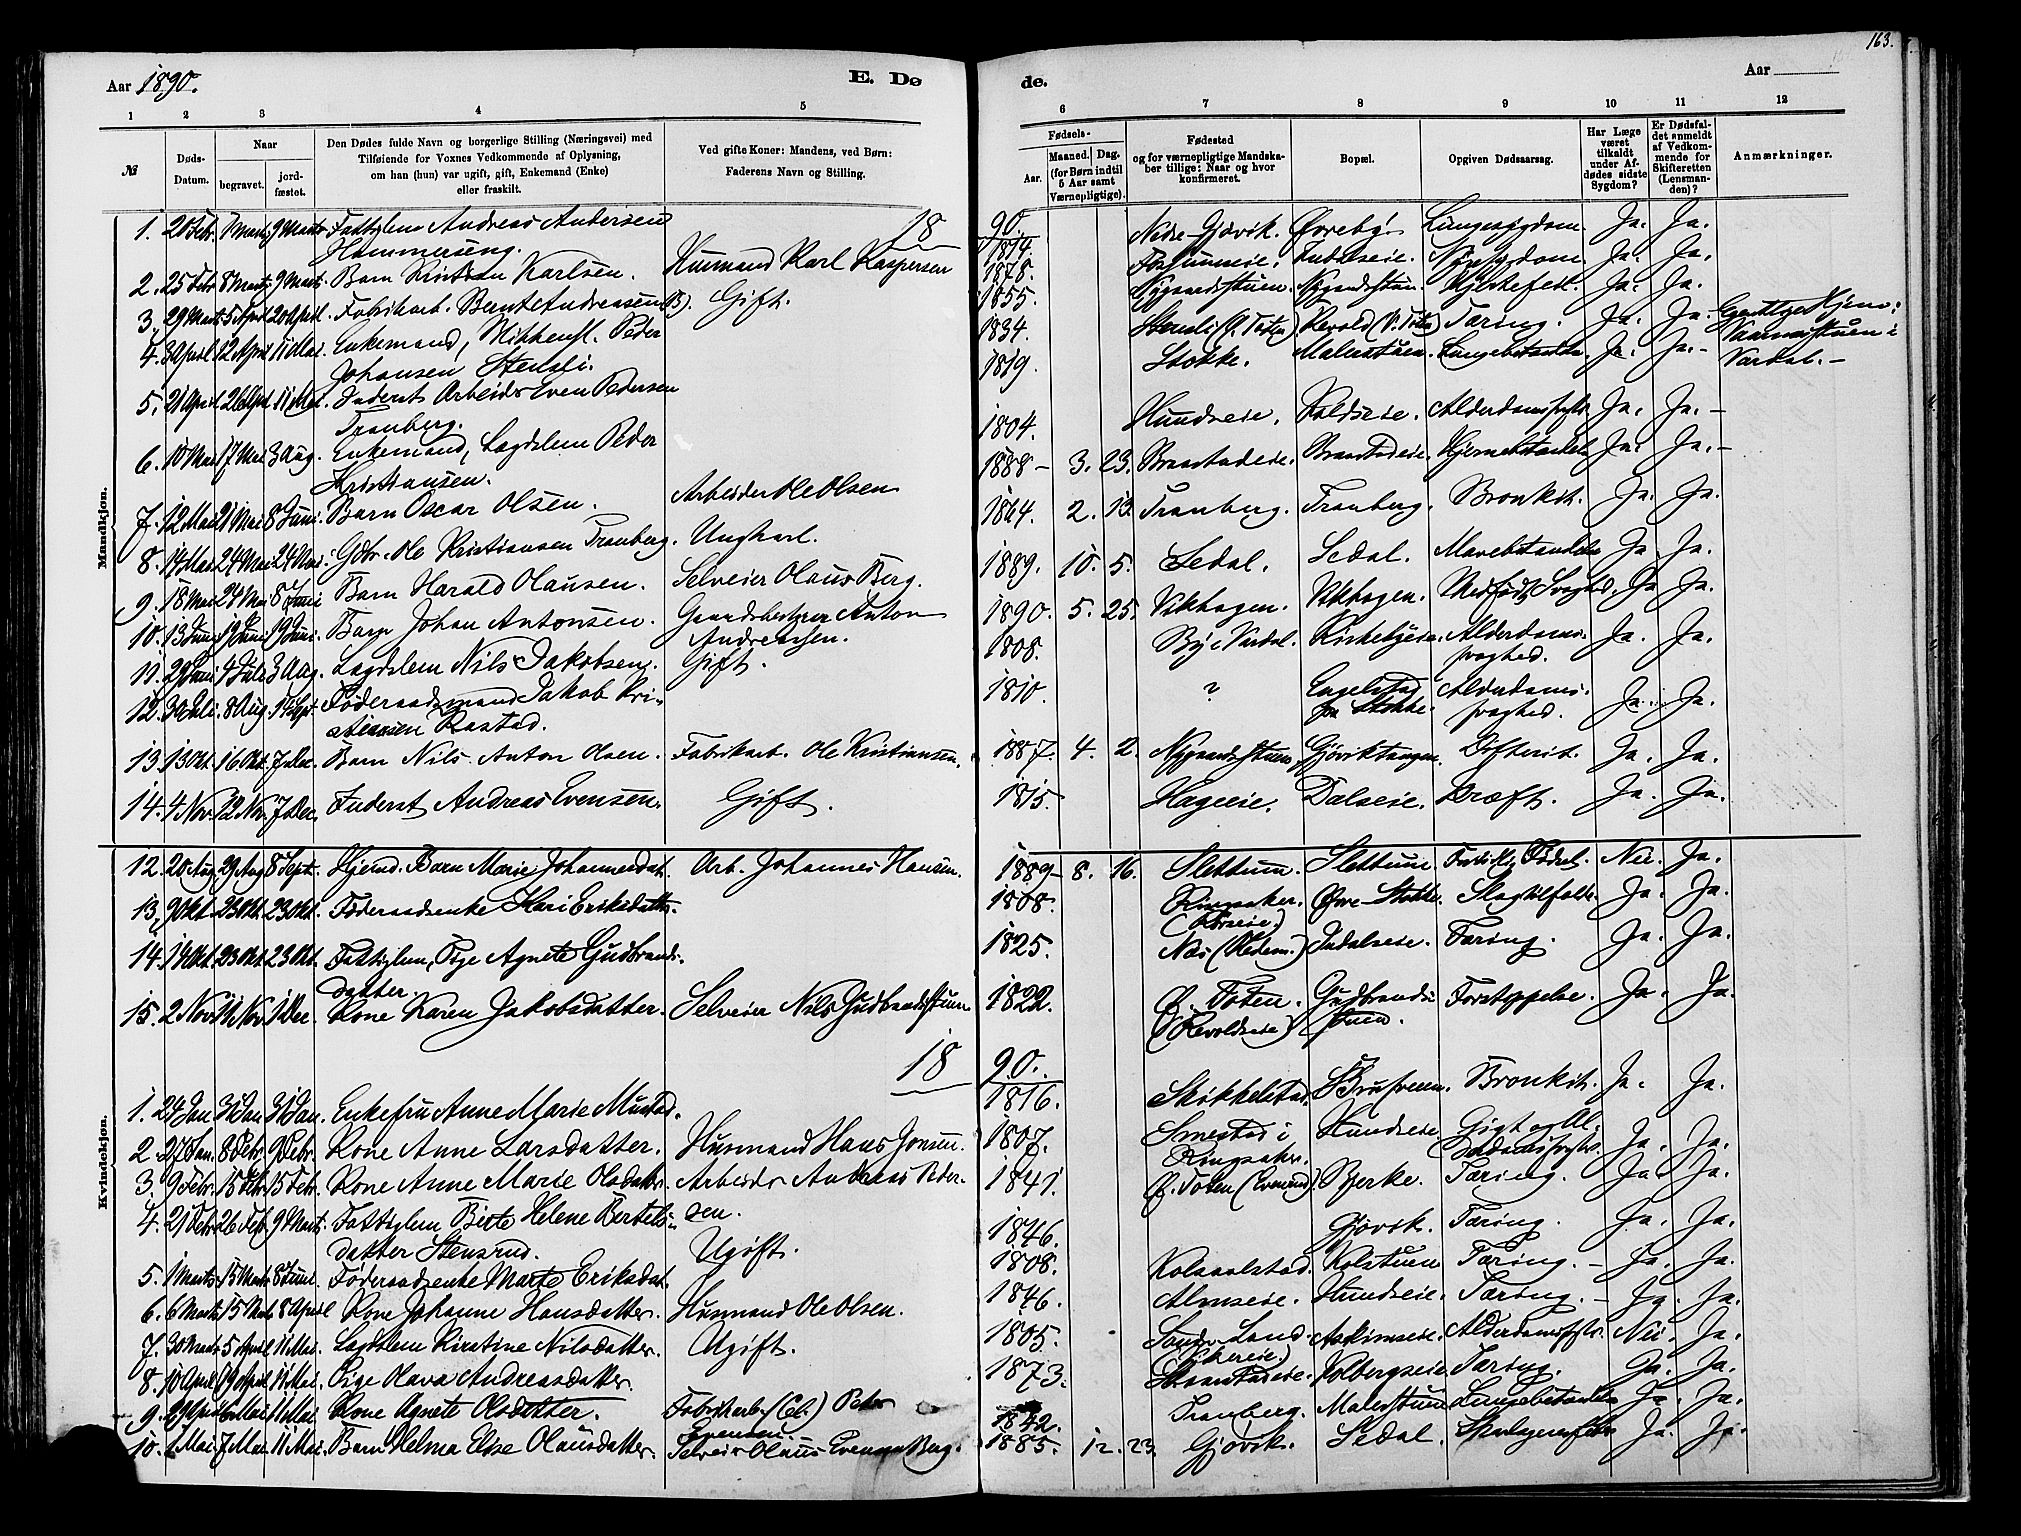 163.
Aar 1890. E. Dø de. Aar
1 2 3 4 5 6 7 8 9 10 11 12
№ Døds-Datum. Naar begravet. jordfæstet. Den Dødes fulde Navn og borgerlige Stilling (Næringsvei) med Tilføiende for Voxnes Vedkommende af Oplysning, om han (hun) var ugift, gift, Enkemand (Enke) eller fraskilt. Ved gifte Koner: Mandens, ved Børn: Faderens Navn og Stilling. Fødsels- Aar. Maaned. Dag. (for Børn indtil 5 Aar samt Værnepligtige). Fødested og for værnepligtige Mandskaber tillige: Naar og hvor konfirmeret. Bopæl. Opgiven Dødsaarsag. Har Læge været tilkaldt under Afdødes sidste Sygdom? Er Dødsfaldet anmeldt af Vedkommende for Skifteretten (Lensmanden)? Anmærkninger.
Mandkjøn.
18 90.
1. 20 Febr. 7 Marts 9 Marts Fattiglem Andreas Andersen Hammerseng. 1814. Nedre Gjøvik. Øvreby. Lungesygdom. Ja. Ja.
2. 25 Febr 8 Marts 9 Marts. Barn Kristian Karlsen. Husmand Karl Kaspersen 1878. Indalseie. Nyresygdom. Ja. Ja.
3. 29 Marts 5 April 20 April. Fabrikarb. Bernt Andreasen (B). Gift. 1855. Nygaardsstuen. Nygaardsstuen. Hjertefeil. Ja. Ja.
4. 3 April 12 April 11 Mai. Enkemand, Peder Johansen Stensli. 1834. Stensli (V. Toten). Revold (V. Toten) Tæring. Ja. Ja.
Vardal.
5. 21 April 26 April 11 Mai. Inderst Arbeider Even Pedersen Tranberg. 1819. Stokke. Malerstuen. Lungebetændelse Ja. Ja.
6. 10 Mai 17 Mai 3 Aug. Enkemand, Lægdslem Peder Kristiansen. 1804. Hundseie. Ja. Ja.
7. 12 Mai 21 Mai 8 Juni. Barn Oscar Olsen. Arbeider Ole Olsen 1888 3. 23. Braastadeie. Braastadeie. Hjernebetændelse Ja. Ja.
8. 14 Mai 24 Mai 24 Mai. Gdbr. Ole Kristiansen Tranberg. Ungkarl. 1864. 2. 13. Tranberg. Tranberg. Bronkit. Ja. Ja.
9. 18 Mai 24 Mai 8 Juni Barn Harald Olausen. Selveier Olaus Berg. 1889. 10. 5. Sedal. Sedal. Mavebetændelse Ja Ja.
10. 13 Juni 19 Juni 19 Juni. Barn Johan Antonsen. Gaardsbestyrer Anton Andreassen. 1890. 5. 25. Vikhagen. Vikhagen. Medfødt Svaghed. Ja Ja.
11. 29 Juni 4 Juli 3 Aug. Lægdslem Nils Jakobsen. Gift. 1808. By i Vardal. Kirkebyeie. Alderdomssvaghed. Ja. Ja.
12. 30 Juli. 8 Aug. 14 Sept. Føderaadsmand Jakob Kristiansen Rostad. 1810. ? Engelstad fra Stokke. Alderdomssvaghed. Ja. Ja.
13. 13 Okt. 16 Okt. 7 Dec. Barn Nils Anton Olsen. Fabrikarb. Ole Kristiansen. 1887. 4. 2. Nygaardsstuen. Gjøviktangen. Difterit. Ja. Ja.
14. 4 Nov. 12 Nov. 7 Dec. Inderst Andreas Evensen. Gift. 1815. Hageeie. Dalseie. Kræft. Ja. Ja.
12. 20 Aug. 29 Aug 8 Sept. Hjemd. Barn Marie Johannesdat. Arb. Johannes Hansen. 1889 8. 16. Slettum. Slettum. Fødsel. Nei. Ja.
13. 9 Okt. 23 Okt. 23 Okt. Føderaadsenke Kari Eriksdatter. 1808. Ringsaker. Øvre Stokke. Slagtilfælde. Ja. Ja.
14. 14 Okt. 23 Okt. 23 Okt. Fattiglem, Pige Agnete Gudbrandsdatter. 1825. Næs (Hedem.) Indalseie. Tæring. Ja. Ja.
15. 2 Nov 11 Nov. 1 Dec. Kone Karen Jakobsdatter. Selveier Nils Gudbrandsstuen 1822. Ø. Toten. (Revoldseie) Gudbrandsstuen. Forstoppelse. Ja. Ja.
18 90.
Kvindekjøn.
1. 24 Jan 31 Jan. 31 Jan. Enkefru Anne Marie Mustad. 1816. Skikkelstad. Brusveen. Bronkit. Ja. Ja.
2. 27 Jan. 8 Febr. 9 Febr. Kone Anne Larsdatter. Husmand Hans Jonsen. 1807. Smestad i Ringsaker. Hundseie Gigt og Alderdomssvaghed. Ja. Ja.
3. 9 Febr. 15 Febr. 15 Febr. Kone Anne Marie Olsdatter. Arbeider Andreas Pedersen. 1841. Ø. Toten Bjerke. Tæring. Ja Ja.
4. 21 Febr. 26 Feb. 9 Marts. Fattiglem Birte Helene Bertelsdatter Stensrud. Ugift. 1846. Gjøvik. Tæring. Ja. Ja.
5. 1 Marts 15 Marts 8 Juni. Føderaadsenke Marte Eriksdat. 1808. Kolstuen Tæring. Ja. Ja.
6. 6 Marts 15 Marts 8 April Kone Johanne Hansdatter. Husmand Ole Olsen. 1846. Almseie. Hundseie. Tæring. Ja. Ja.
7. 30 Marts 5 April 11 Mai. Lægdslem Kirstine Nilsdatter. Ugift. 1805. Søndre Land Askimseie. Alderdomssvaghed Nei. Ja.
8. 10 April 19 April 11 Mai. Pige Olava Andreasdatter. 1873. Braastadeie. Kolbergseie Tæring. Ja. Ja.
9. 29 April 6 Mai 11 Mai Kone Agnete Olsdatter. Fabrikarb. (Cel.) Peter Evensen. 1842. Tranberg. Malerstuen Lungebetændelse Ja. Ja.
10. 1 Mai 7 Mai 11 Mai. Barn Helma Elise Olausdatter. Selveier Olaus Evensen Berg. 1885. 12. 23. Gjøvik. Sedal. Skarlagensfeber Ja. Ja.